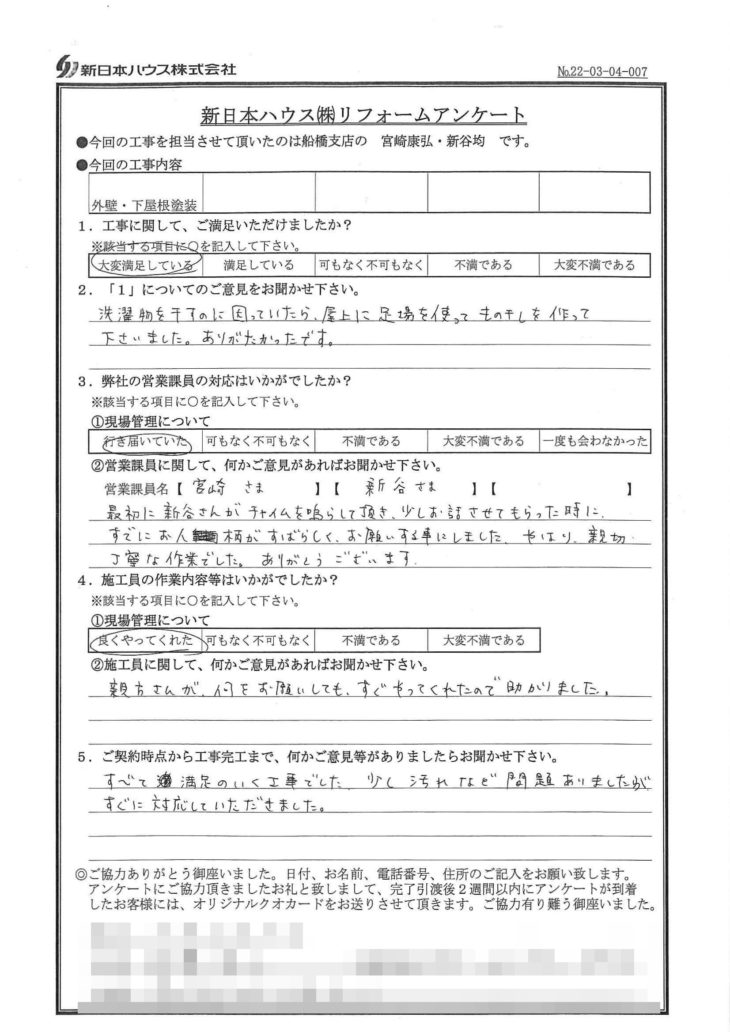 新日本ハウス株式会社
№22-03-04-007
新日本ハウス㈱リフォームアンケート
●今回の工事を担当させて頂いたのは船橋支店の 宮崎康弘・新谷均 です。
●今回の工事内容
外壁・下屋根塗装
1．工事に関して、ご満足いただけましたか？
※該当する項目に○を記入して下さい。
大変満足している 満足している 可もなく不可もなく 不満である 大変不満である
2．「1」についてのご意見をお聞かせ下さい。
洗濯物を干すのに困っていたら、屋上に足場を使ってもの干しを作って
下さいました。ありがたかったです。
3．弊社の営業課員の対応はいかがでしたか？
※該当する項目に○を記入して下さい。
①現場管理について
行き届いていた 可もなく不可もなく 不満である 大変不満である 一度も会わなかった
②営業課員に関して、何かご意見があればお聞かせ下さい。
営業課員名【 宮崎 さま 】【 新谷さま 】【 】
最初に新谷さんがチャイムを鳴らして頂き、少しお話させてもらった時に、
すでにお人柄がすばらしく、お願いする事にしました。やはり、親切
丁寧な作業でした。ありがとうございます。
4．施工員の作業内容等はいかがでしたか？
※該当する項目に○を記入して下さい。
①現場管理について
良くやってくれた 可もなく不可もなく 不満である 大変不満である
②施工員に関して、何かご意見があればお聞かせ下さい。
親方さんが、何をお願いしても、すぐやってくれたので助かりました。
5．ご契約時点から工事完工まで、何かご意見等がありましたらお聞かせ下さい。
すべて満足のいく工事でした。少し汚れなど問題ありましたが、
すぐに対応していただきました。
◎ご協力ありがとう御座いました。日付、お名前、電話番号、住所のご記入をお願い致します。
アンケートにご協力頂きましたお礼と致しまして、完了引渡後2週間以内にアンケートが到着
したお客様には、オリジナルクオカードをお送りさせて頂きます。ご協力有り難う御座いました。